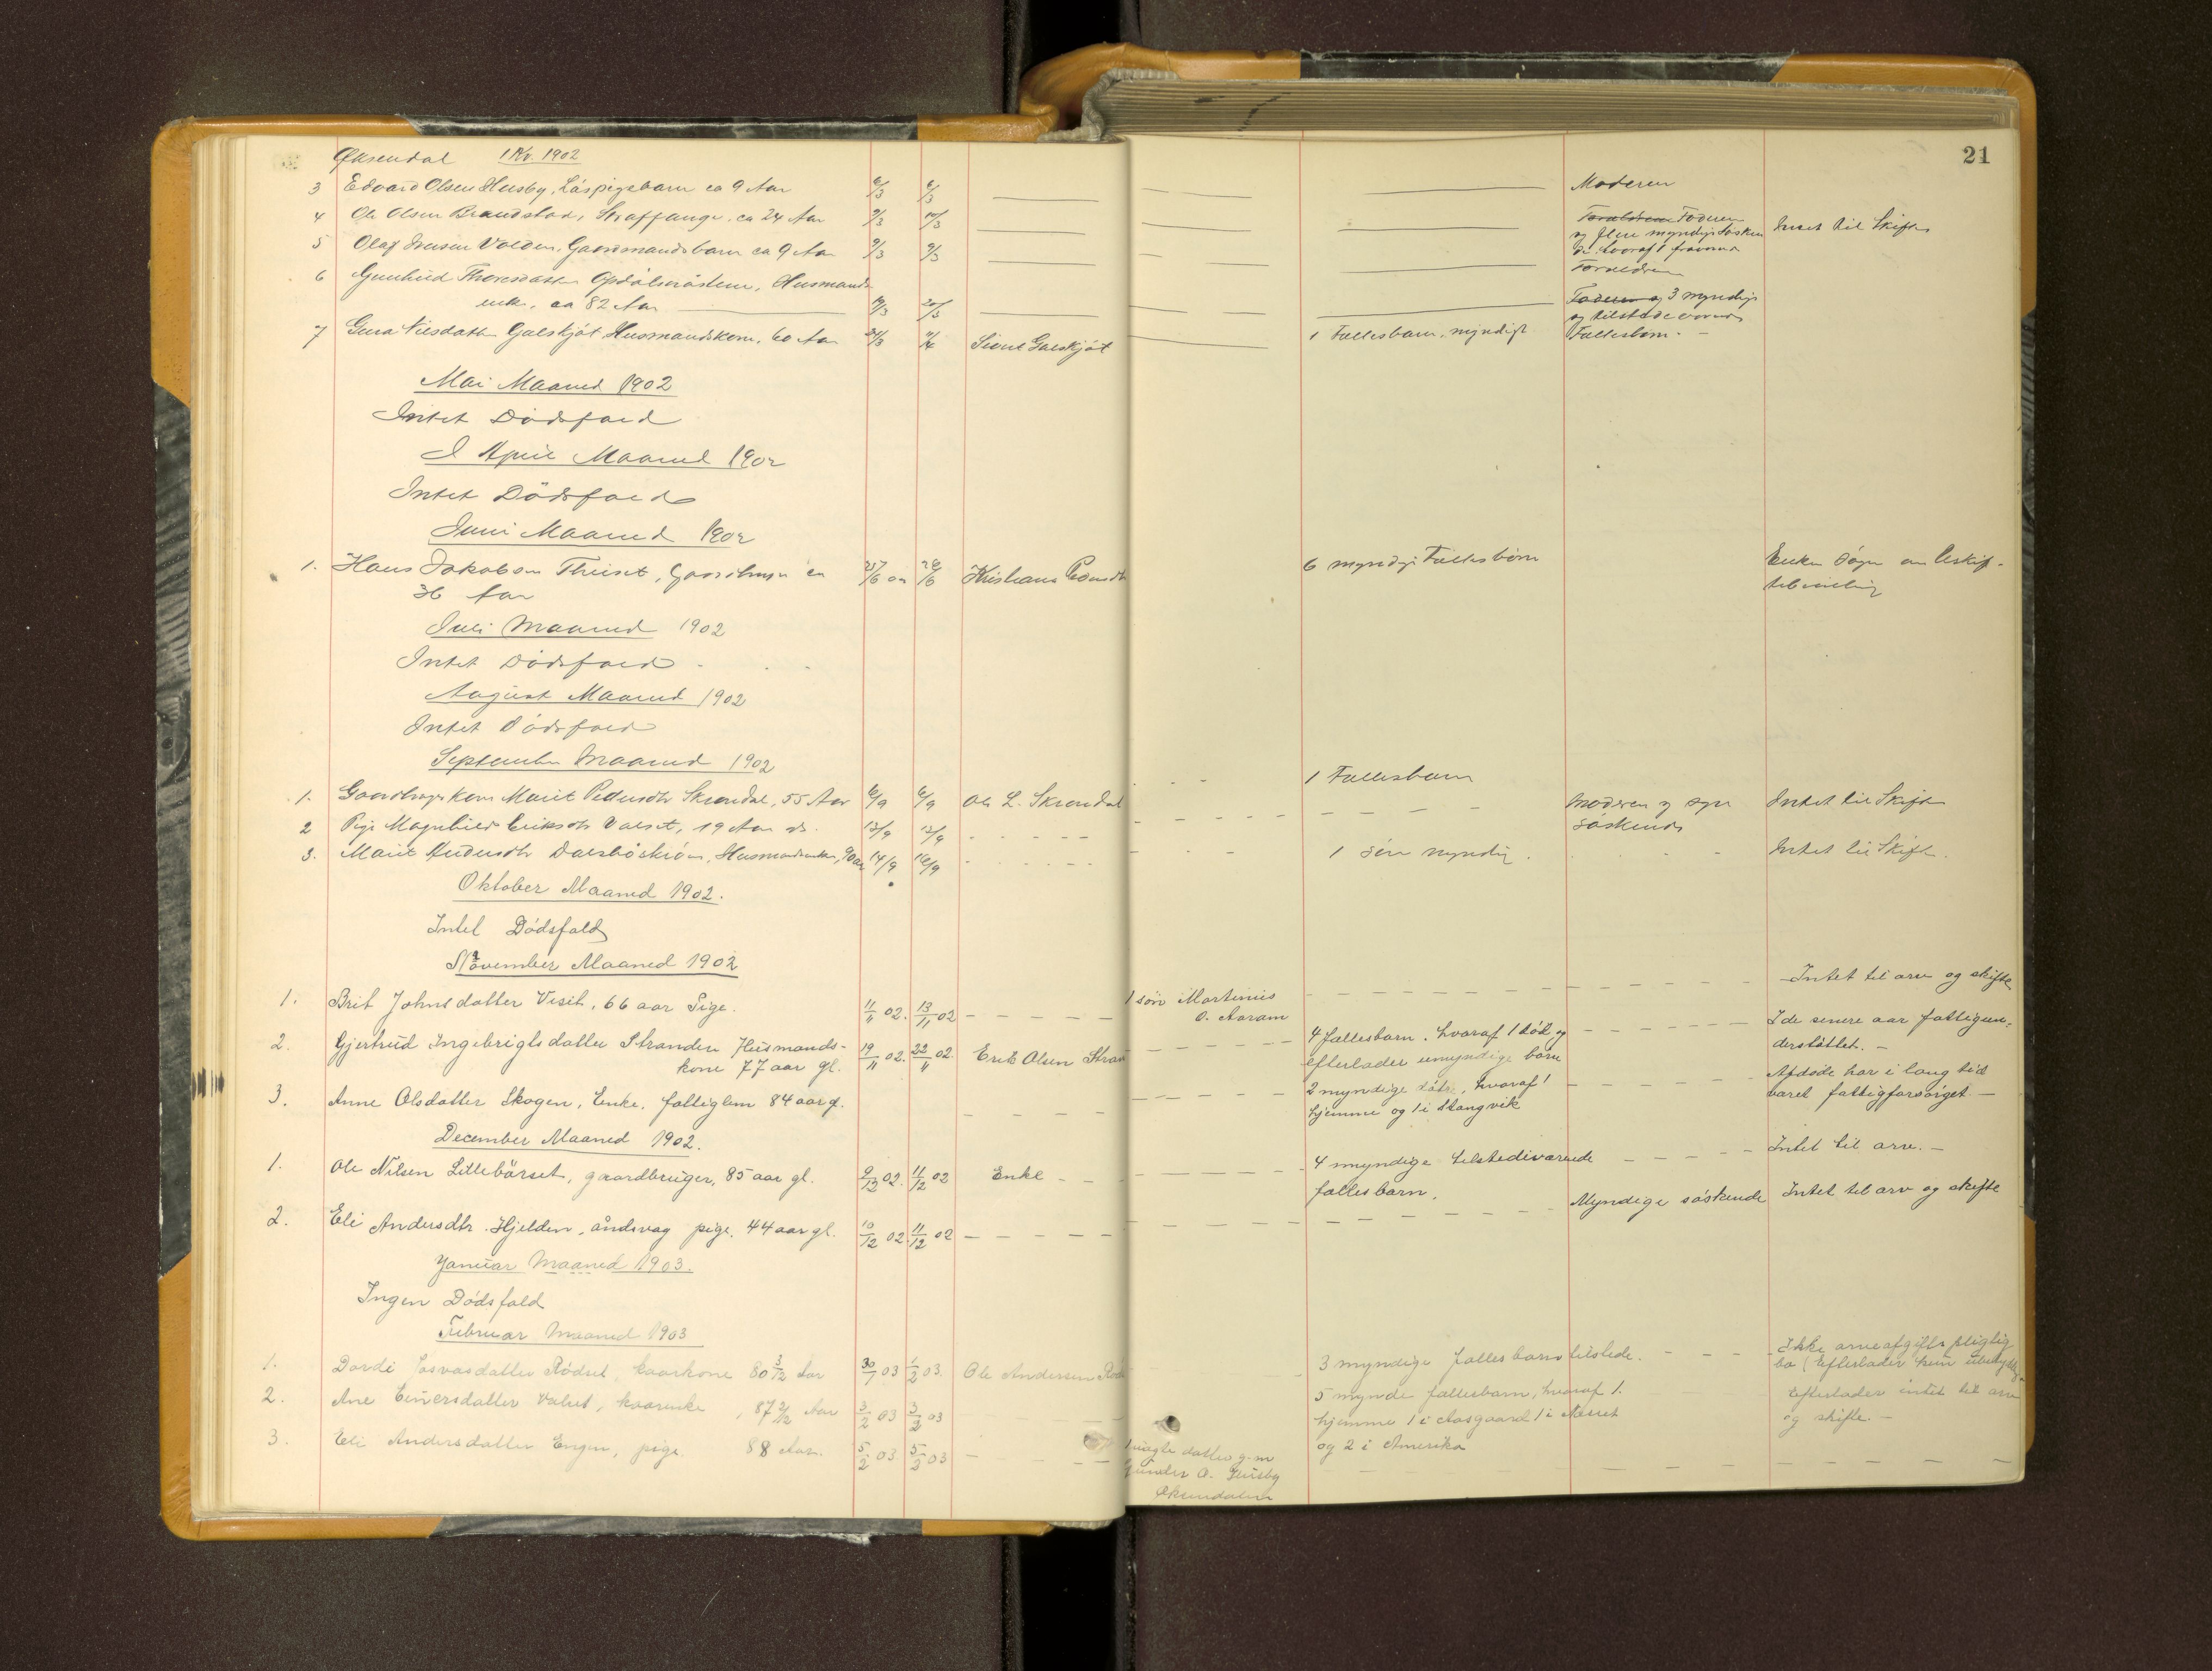 21
Øksendal 1 Kv. 1902
3 Edvard Olsen Husby, Løspigebarn ca 9 Aar 6/3 6/3 Moderen
4 Ole Olsen Brandstad, Straffange, ca 24 Aar 9/3 10/3 Forældrene Faderen Intet til Skifte
og flere myndige Søsken
de hvoraf 1
5 Olaf Iversen Volden, Gaardmandsbarn ca 9 Aar 9/3 9/3 Forældrene
6 Gunhild Thoresdatter Opdölsrösten, Husmands
enke, ca 82 Aar 20/3 Faderen og 3 myndige
og tilstedeværende
7 Gura Nilsdatter Galskjöt Husmandskone, 60 Aar 24/3 Sivert Galskjöt 1 Fællesbarn, myndigt Fællesbarn.
Mai Maaned 1902
Intet Dödsfald
I April Maaned 1902
Intet Dödsfald
Juni Maaned 1902
1. Hans Jakobsen Thriset, Gaardbruger ca 6/6 Kristiane Pedersdtr 6 myndige Fællesbörn Enken
36 Aar
Juli Maaned 1902
Intet Dödsfald
August Maaned 1902
Intet Dödsfald
September Maaned 1902
1. Gaardbrugerkone Marit Pedersdtr Skrondal, 55 Aar 6/9 6/9 Ole L. Skrondal 1 Fællesbarn
2 Pige Magnhild Eriksdtr Valset, 19 Aar 12/9 12/9 Moderen og syv Intet til Skifte
søskende
3. Marit Andersdtr Dalsböskröm, Husmandsenke, 90 aar 14/9 16/9 1 sön myndig. Intet til Skifte.
Oktober Maaned 1902.
Intet Dödsfald
November Maaned 1902
1. Brit Johnsdatter Visit, 66 aar Pige. 11/11 02. 13/11 02 1 sön Martinus Intet til arv og skifte
O. Aaram
2. Gjertrud Ingebrigtsdatter Stranden Husmands- 19/11 02. 22/11 02. Erik Olsen Stran 4 fællesbarn, hvoraf 1 död og I de senere aar fattigun-
kone 77 aar gl. efterlader umyndige barn derstöttet.
3. Anne Olsdatter Skogen, Enke, fattiglem 84 aar g. 2 myndige döttre, hvoraf 1 Afdøde har i lang tid
hjemme og 1 i Stangvik været fattigforsörget
December Maaned 1902.
1. Ole Nilsen Lillebörset, gaardbruger, 85 aar gl. 9/12 02. 11/12 02 Enke 4 myndige tilstedeværende Intet til arv.
fællesbarn.
2. Eli Andersdtr. Hjelden, åndsvag pige, 44 aar gl. 10/12 02. 11/12 02 Myndige søskende Intet til arv og skifte
Januar Maaned 1903.
Ingen Dödsfald
Februar Maaned 1903
1. Dordi Josvasdatter Rödset, kaarkone 80 3/12 Aar 30/1 03 1/2 03. Ole Andersen Röds 3 myndige fællesbarn tilstede. Ikke arveafgifts pligtig
bo (Efterlader kun
2. Ane Einersdatter Valset, kaarenke, 87 2/12 Aar 3/2 03 3/2 03 5 mynde fællesbarn, hvoraf 1. Efterlader intet til arv
hjemme 1 i Aasgaard 1 i Næsset og skifte.
og 2 i Amerika
3. Eli Andersdatter Engen, pige 88 Aar. 5/2 03 5/2 03 1 uægte datter g. m
Gunder O. Husby
Øksendalen